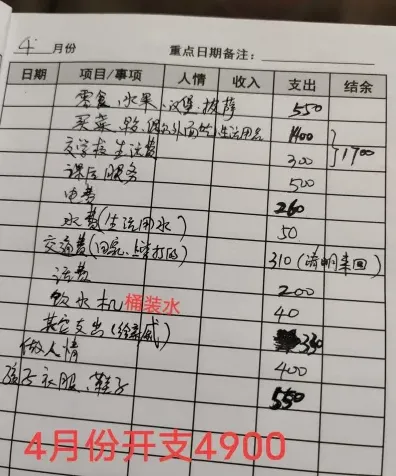 4月份 重点日期备注：
日期 项目/事项 人情 收入 支出 结余
零食、水果、汉堡、披萨 550
买菜、偶尔外面吃、生活用品 1400 } 1700
交学校生活费 300
课后服务 500
电费 260
水费(生活用水) 50
交通费(回家、上学打的) 310(清明来回)
话费 200
饮水机 桶装水 40
其它支出( 330
做人情 400
孩子衣服、鞋子 550
4月份开支4900